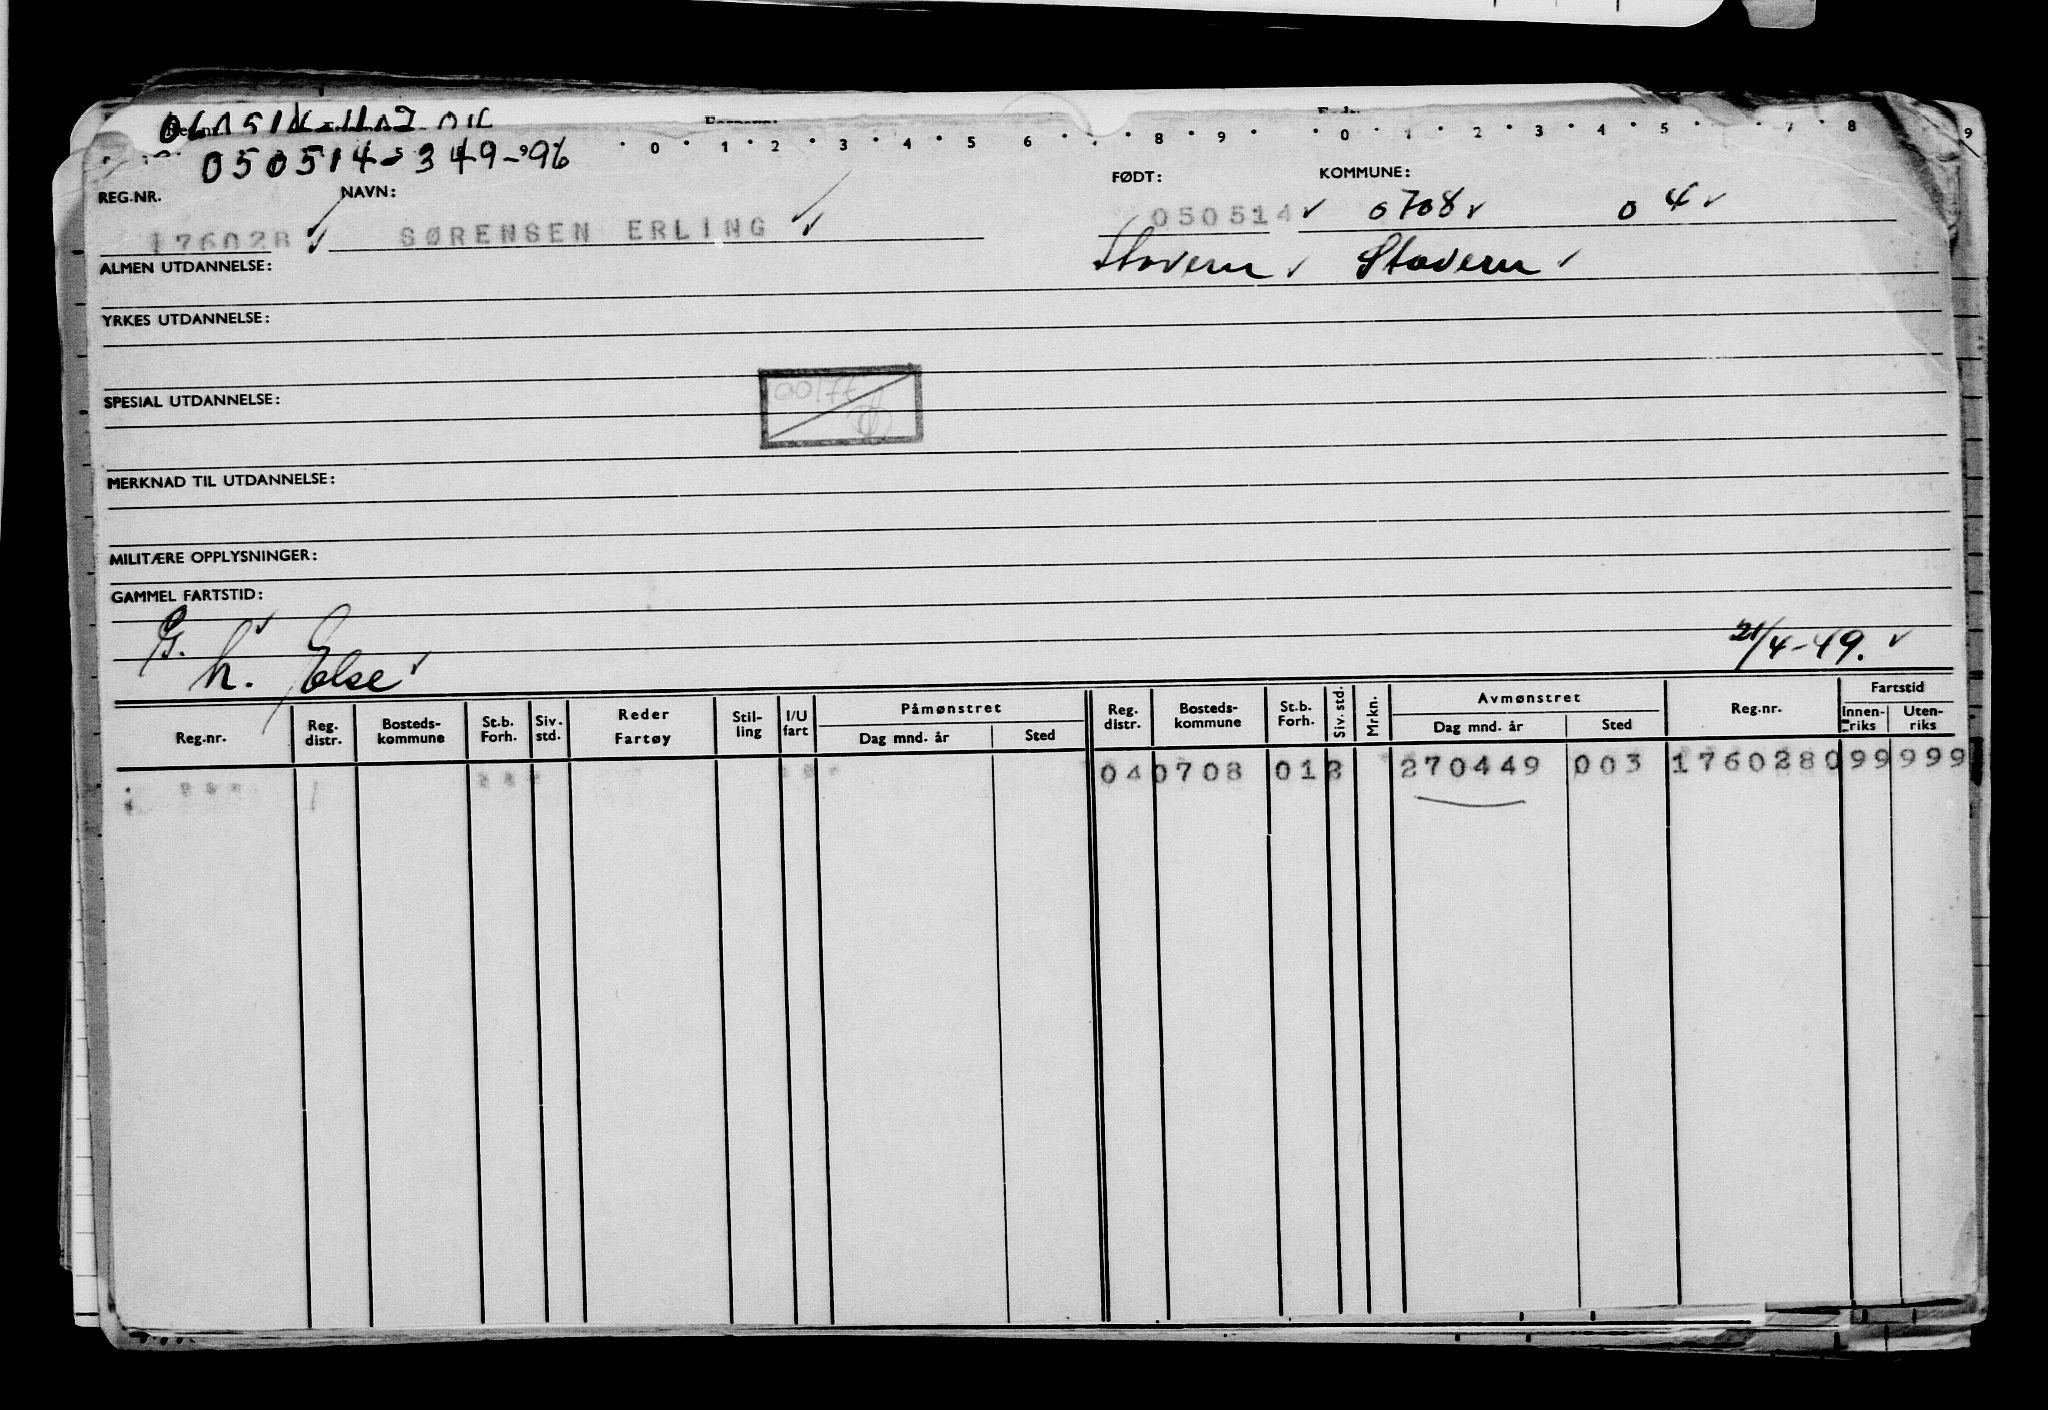 050514-349-96
0 1 2 3 4 5 6 8 9 0 1 2 3 4 5 7 8 9
REG.NR. NAVN: FØDT: KOMMUNE:
176028 SØRENSEN ERLING 050514 0708 04
ALMEN UTDANNELSE: Stavern Stavern
YRKES UTDANNELSE:
SPESIAL UTDANNELSE:
MERKNAD TIL UTDANNELSE:
MILITÆRE OPPLYSNINGER:
GAMMEL FARTSTID:
G. h. Else 21/4-49.
Reg.nr. Reg. distr. Bosteds-kommune St.b. Forh. Siv. std. Reder Fartøy Stil-ling I/U fart Påmønstret Dag mnd. år Sted Reg. distr. Bosteds-kommune St.b. Forh. Siv. std. Mrkn. Avmønstret Dag mnd. år Sted Reg.nr. Fartstid Innen-riks Uten-riks
04 0708 012 270449 003 1760280 99 999